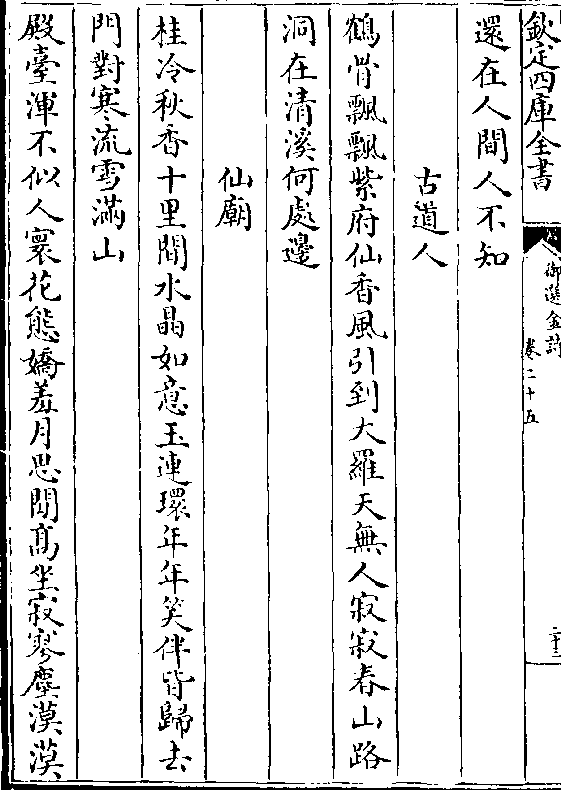 欽定四庫全書
御選金詩
卷二十五
二十三
還在人間人不知
古道人
鶴骨飄飄紫府仙香風引到大羅天無人寂寂春山路
洞在清溪何處邊
仙廟
桂冷秋香十里間水晶如意玉連環年年笑伴皆歸去
門對寒流雪滿山
殿臺渾不似人寰花態嬌羞月思閒髙坐寂寥塵漠漠